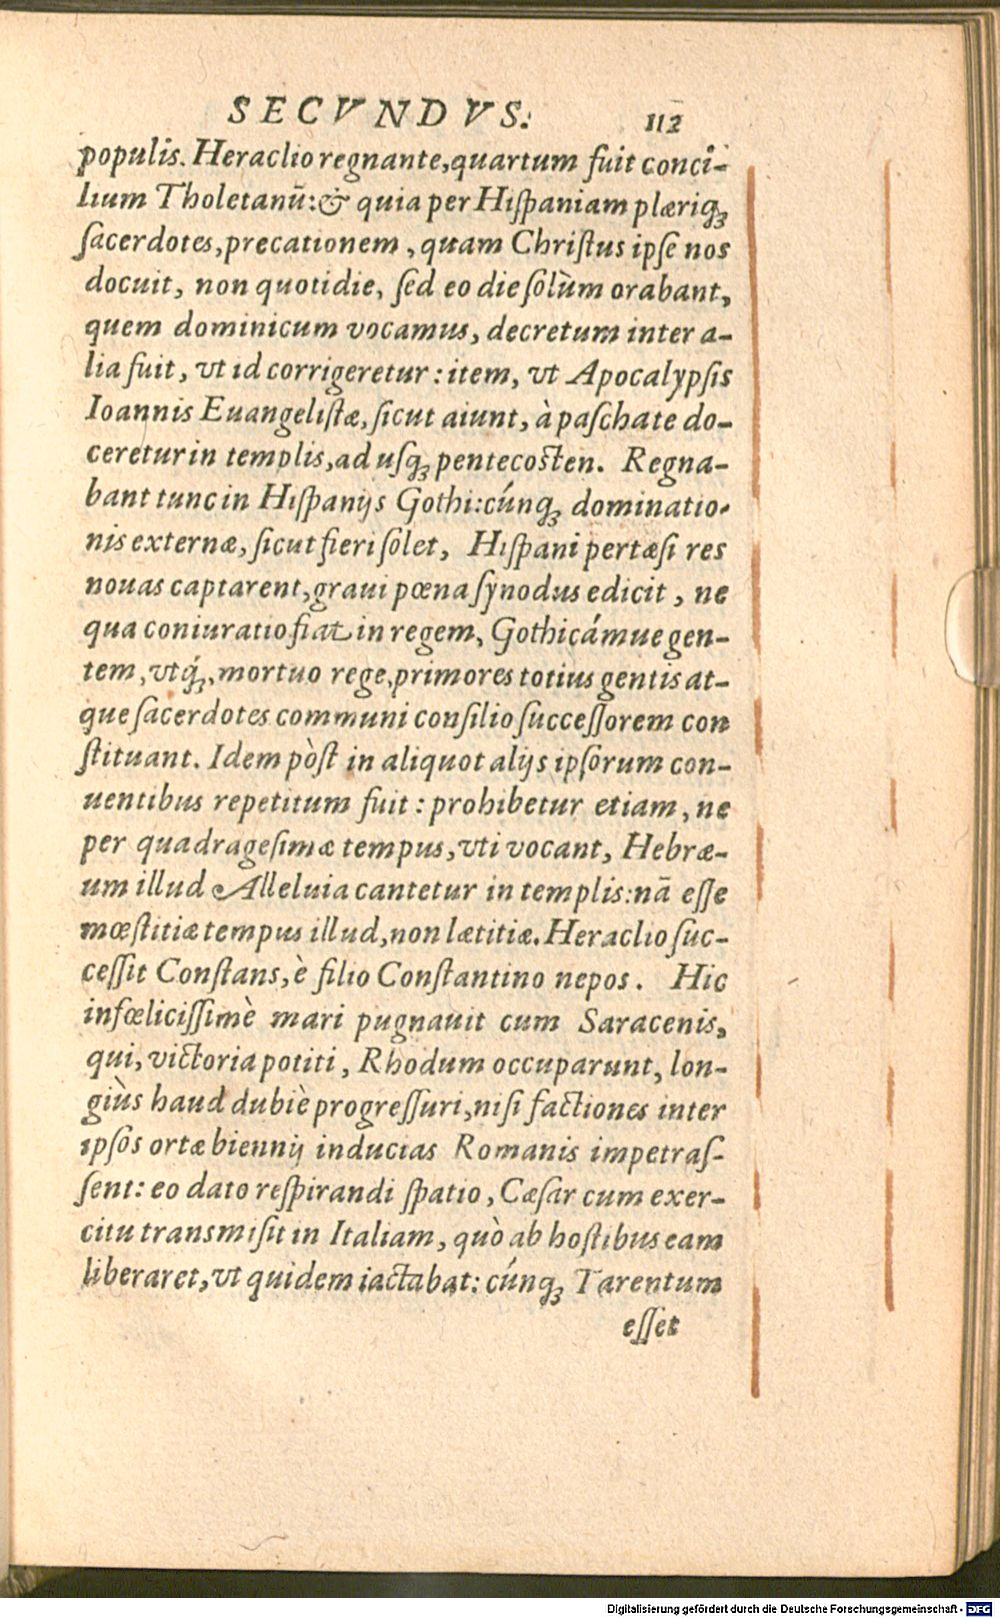 SECVNDVS. 112
populis. Heraclio regnante, quartum fuit conci-
lium Tholetanū: & quia per Hiſpaniam plæriqꝫ
ſacerdotes, precationem, quam Chriſtus ipſe nos
docuit, non quotidie, ſed eo die ſolùm orabant,
quem dominicum vocamus, decretum inter a-
lia fuit, vt id corrigeretur: item, vt Apocalypſis
Ioannis Euangeliſtæ, ſicut aiunt, à paſchate do-
ceretur in templis, ad uſqꝫ pentecoſten. Regna-
bant tunc in Hiſpanijs Gothi: cúnqꝫ dominatio-
nis externæ, ſicut fieri ſolet, Hiſpani pertæſi res
nouas captarent, graui pœna ſynodus edicit, ne
qua coniuratio fiat in regem, Gothicámue gen-
tem, vtq́ꝫ, mortuo rege, primores totius gentis at-
que ſacerdotes communi conſilio ſucceſſorem con
ſtituant. Idem pòſt in aliquot alijs ipſorum con-
uentibus repetitum fuit: prohibetur etiam, ne
per quadrageſimæ tempus, vti vocant, Hebræ-
um illud Alleluia cantetur in templis: nā eſſe
mœſtitiæ tempus illud, non lætitiæ. Heraclio ſuc-
ceſſit Conſtans, è filio Conſtantino nepos. Hic
infœliciſſimè mari pugnauit cum Saracenis,
qui, victoria potiti, Rhodum occuparunt, lon-
giùs haud dubiè progreſſuri, niſi factiones inter
ipſos ortæ biennij inducias Romanis impetraſ-
ſent: eo dato reſpirandi ſpatio, Cæſar cum exer-
citu transmiſit in Italiam, quò ab hoſtibus eam
liberaret, vt quidem iactabat: cúnqꝫ Tarentum
eſſet
Digitalisierung gefördert durch die Deutsche Forschungsgemeinschaft - DFG